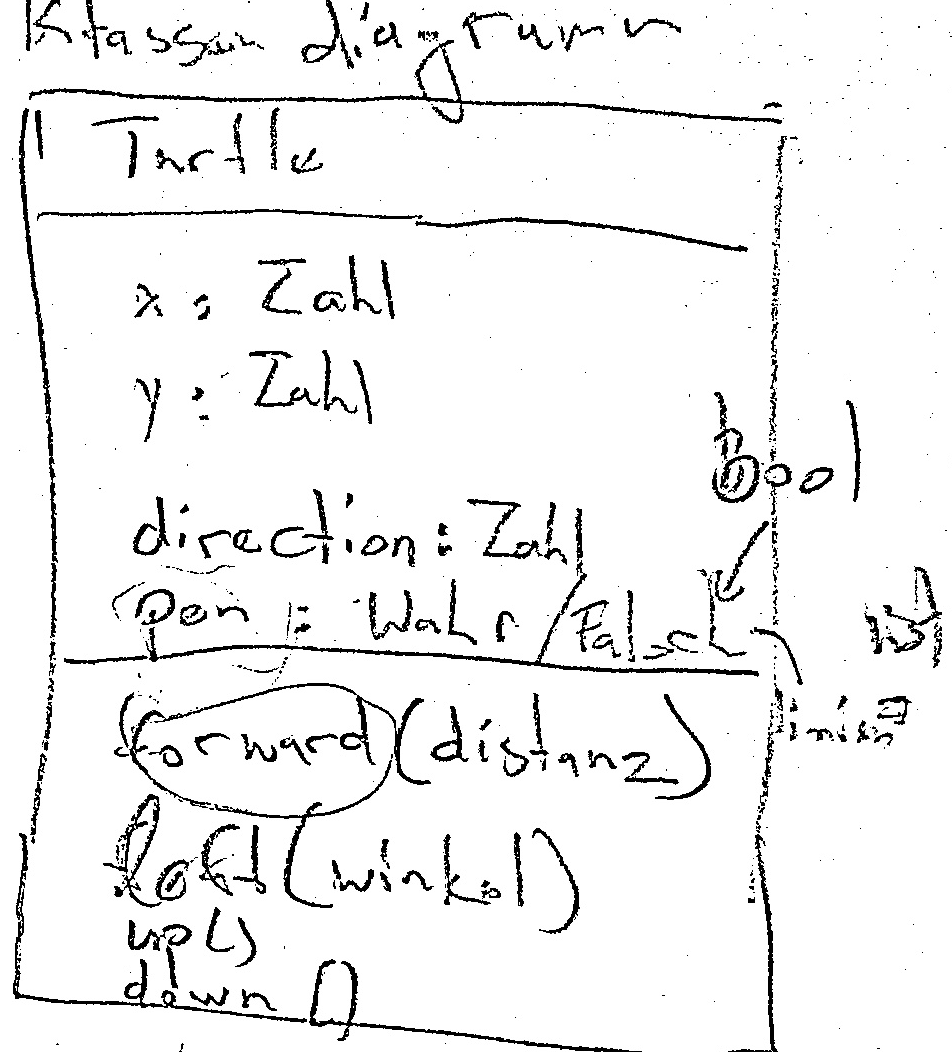 Klassen diagramm
Turtle
x : Zahl
y : Zahl
bool
direction : Zahl
pen : Wahr / Falsch
forward (distanz)
left (winkel)
up ()
down ()